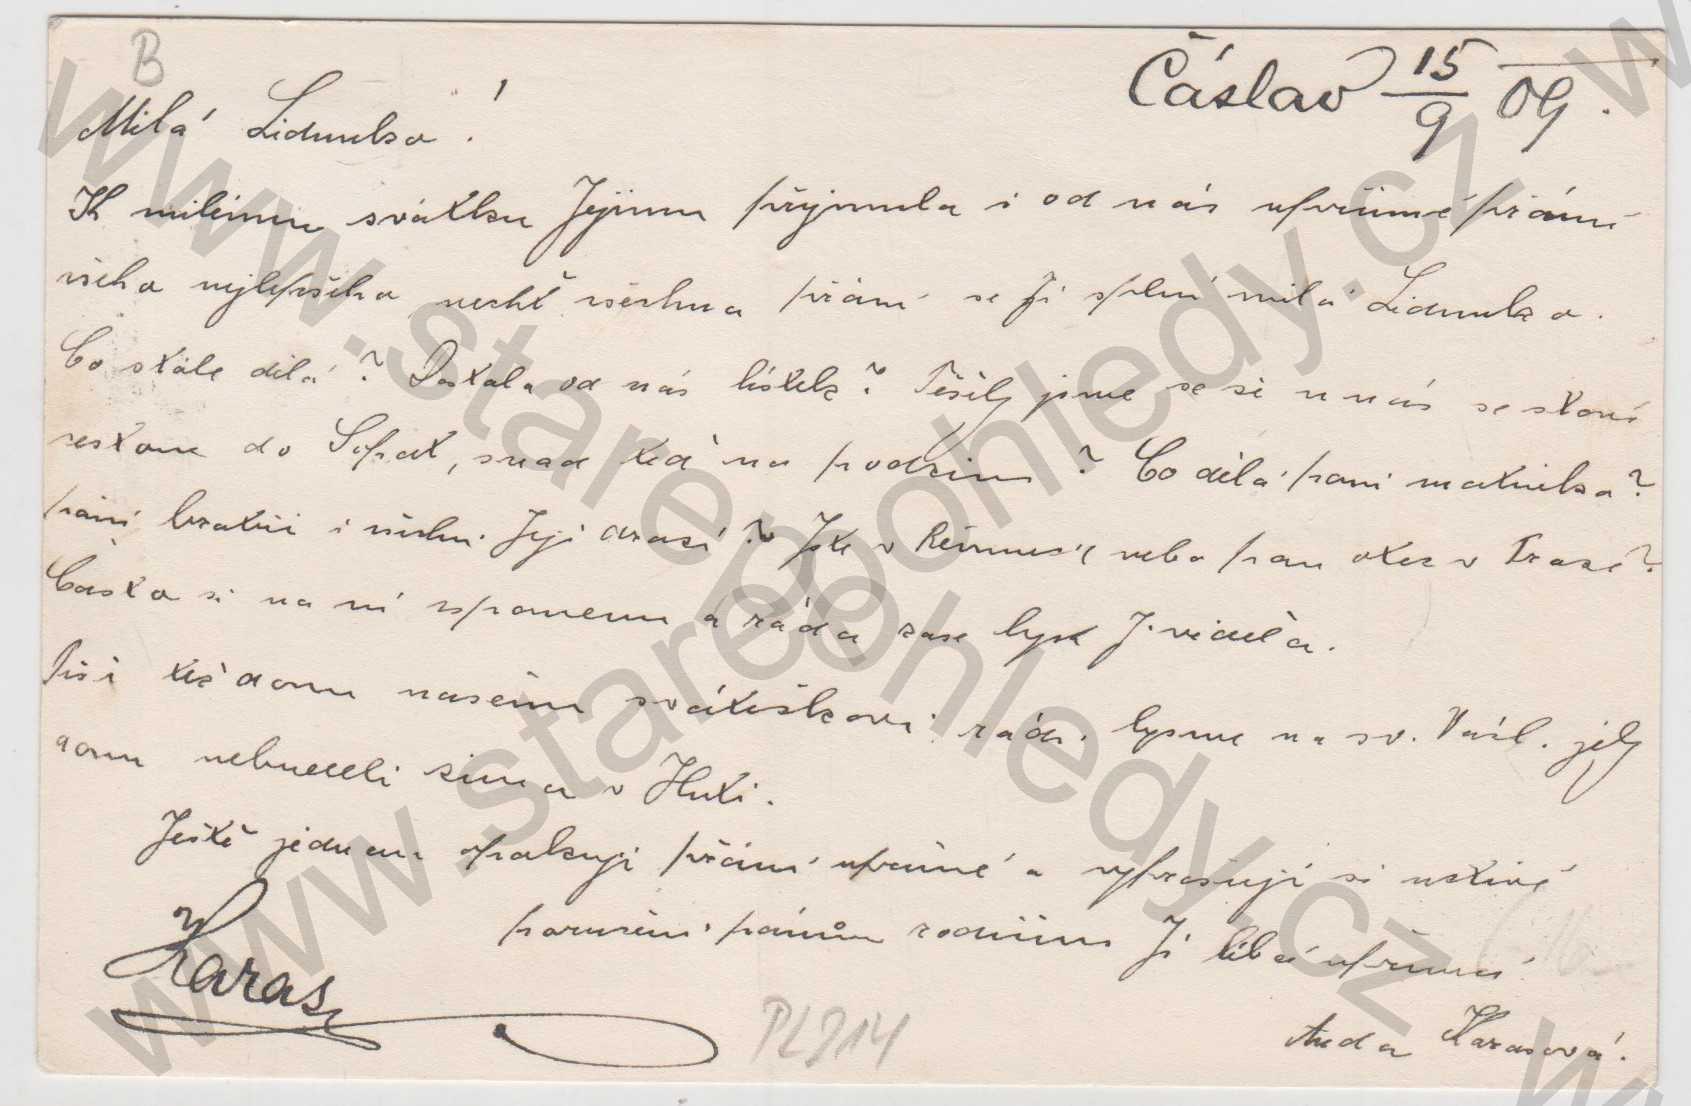 B
Čáslav 15/9 09.
Milá Lidunko!
K milému svátku Jejímu přijmula i od nás upřímné přání
všeho nejlepšího nechť všechna přání se Jí splní milá Lidunko.
Co stále dělá? Dostala od nás lístek? Těšily jsme se že u nás se staví
cestou do, snad teď na podzim? Co dělá paní matinka?
páni bratři i všichni Její drazí? Jste v nebo pan otec v Praze?
Často si na ní vzpomenu a ráda zase bych Ji viděla.
Píši též domu našem rádi bysme na sv. Václ. jely
domu nebudeli zima v Huti.
Ještě jednou opakuji přání upřímné a vyprošuji si uctivé
poručení pánům rodičům Ji líbá upřímná
Karas
Anda Karasová.
PL914
www.stare-pohledy.cz
www.stare-pohledy.cz